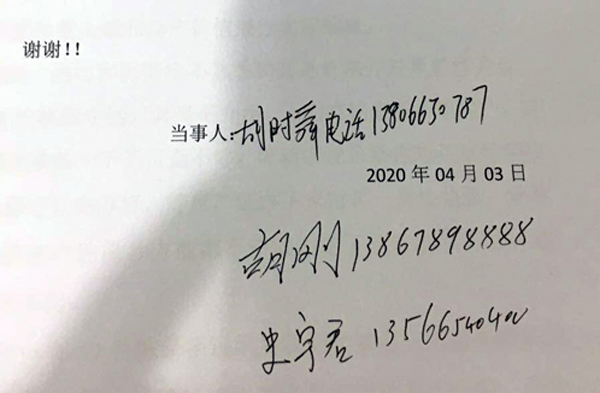 谢谢!!
当事人:胡时舜电话13806650787
2020 年 04 月 03 日
胡刚13867898888
史宇君 135665404